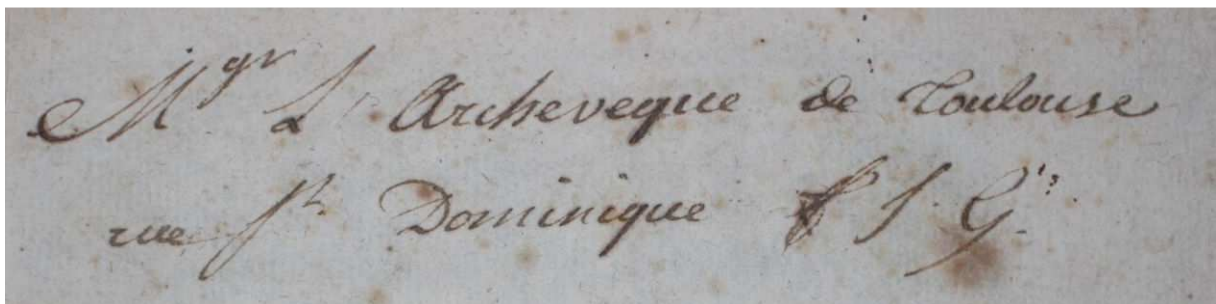 Mgr L'Archeveque de Toulouse
rue St Dominique f S. G.